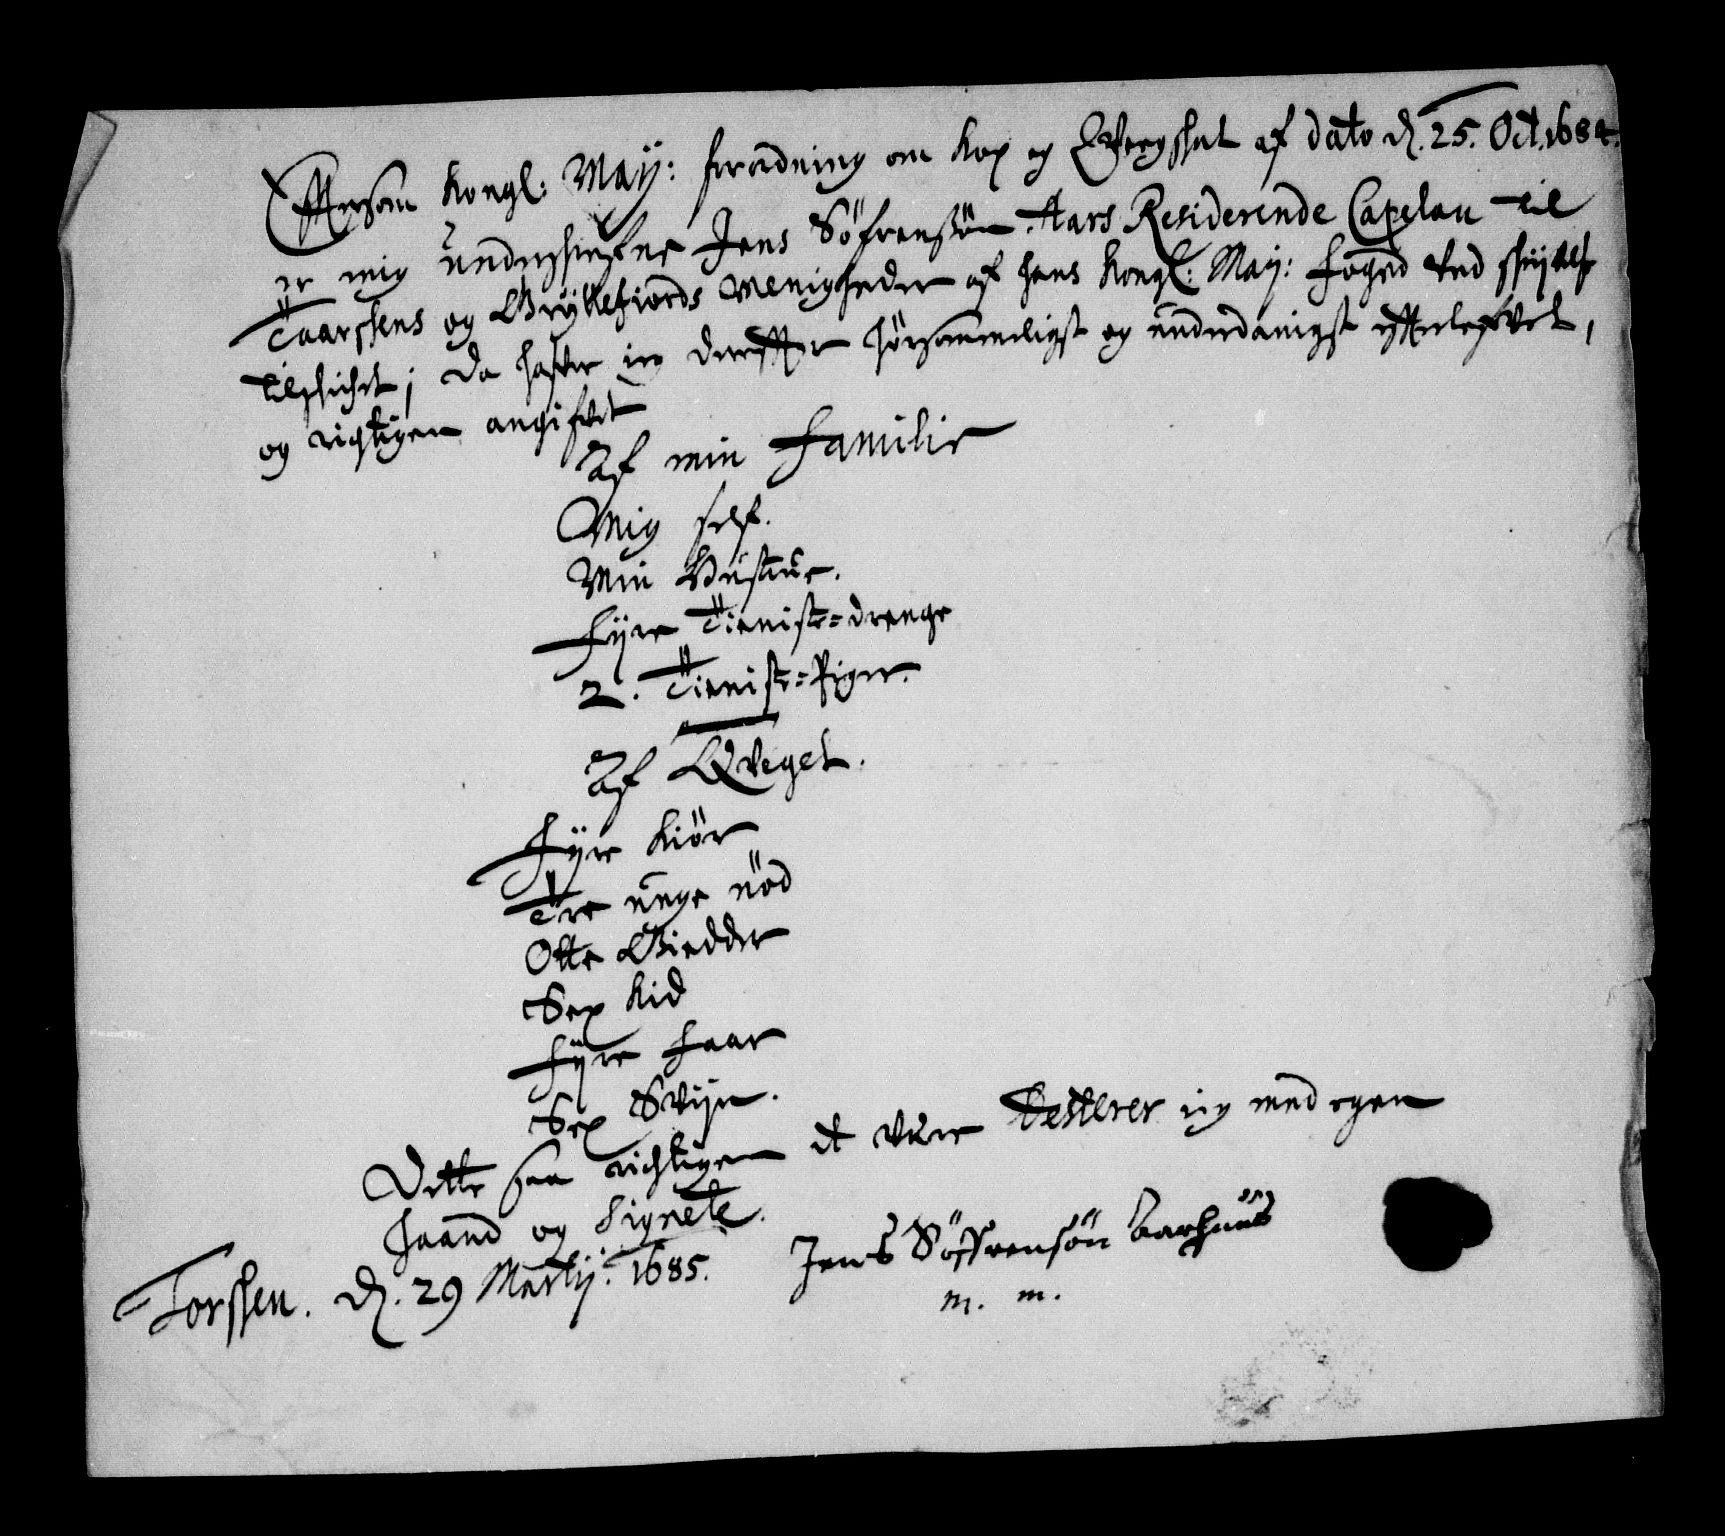 Effersom Kongl: Maÿ: forordning om Kop og Qvegskat af dato d. 25. Oct. 1684.
er mig underskrefne Jens Söfrenßön Aars Residerende Capelan til
Taarskens og Grÿllefiords Menigheder af hans Kongl: Maÿ: foged ved skrifftelse
tilskicket; da hafver ieg derefter hörsommeligst og underdanigst efterlefvet,
og rigtigen angifvet
Af min Familie
Mig self.
Min Hustrue.
Fÿre Tieniste=drenge
2. Tieniste=Piger.
Af Qveget.
Fÿre Kiör
Tre unge nöd
Otte Giedder
Sex Kid
Fÿre Faar
Sex Svijn.
Dette saa richtigen at være testerer ieg med egen
haand og Signete.
Torsken. d. 29 Martij. 1685. Jens Söffrensön Aarhuus
m. m.